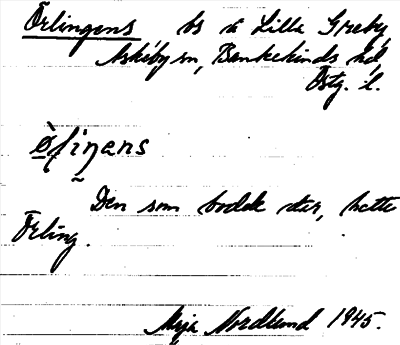 Örlingens bs å Lilla Greby
Askeby sn, Bankekinds hd,
Östg. l.
Den som bodde där, hette
Örling.
Maja Nordlund 1945.